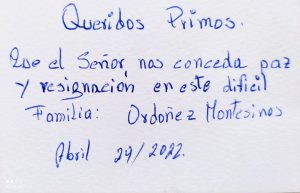 Queridos Primos.
Que el Señor, nos conceda paz
y resignación en este dificil
Familia: Ordoñez Montesinos
Abril 29/2022.